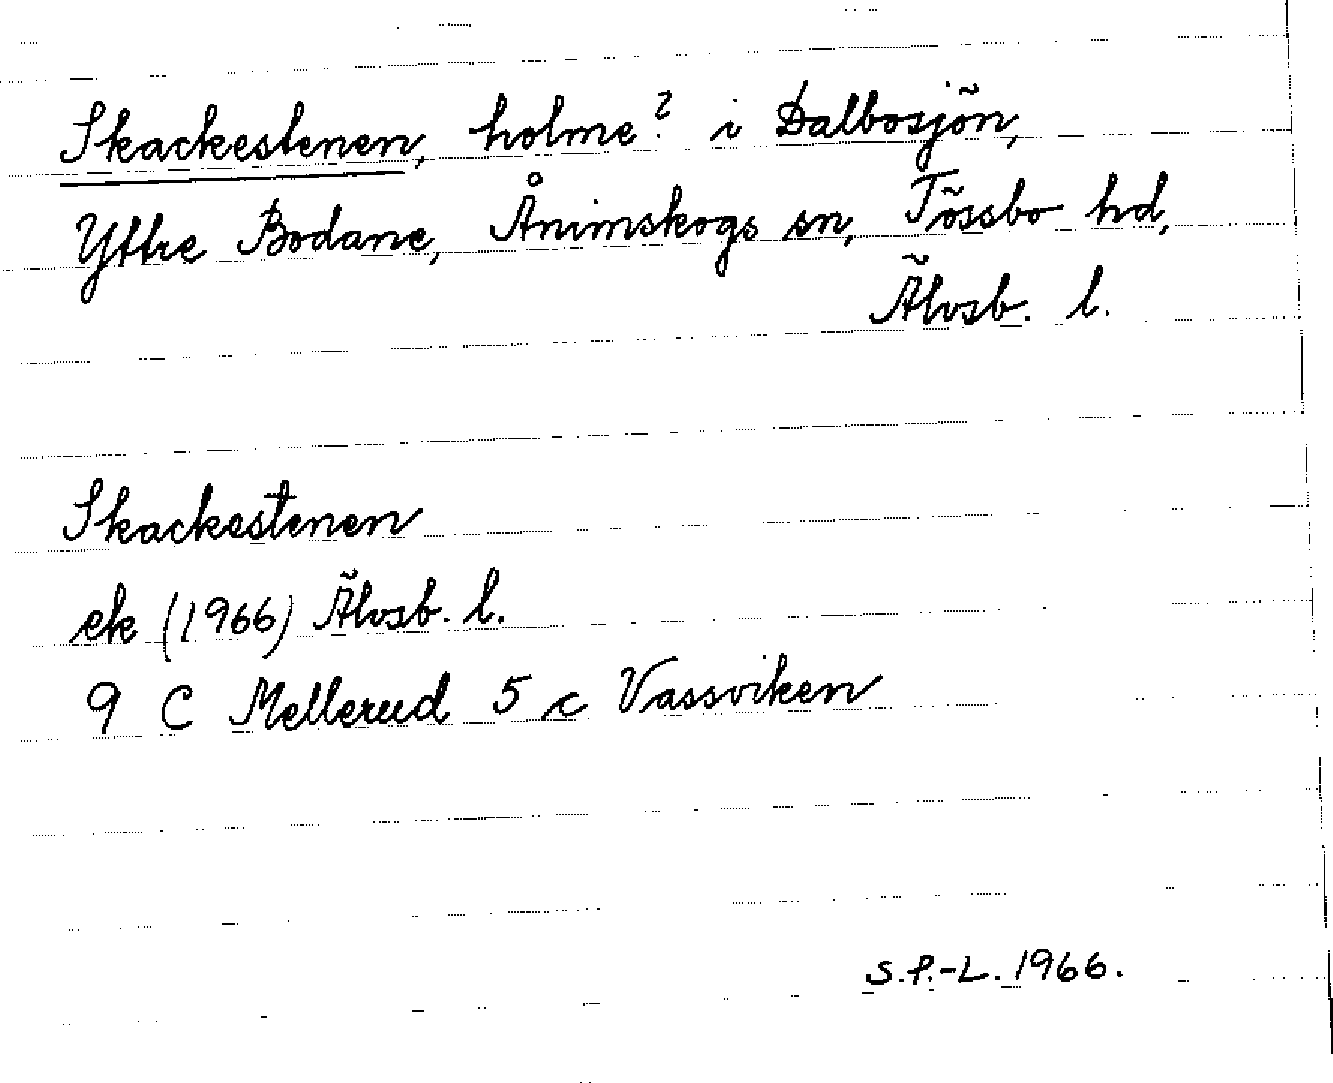 Skackestenen, holme? i Dalbosjön,
Yttre Bodane, Ånimskogs sn, Tössbo hd,
Älvsb. l.
Skackestenen
ek (1966) Älvsb. l.
9 C Mellerud 5 c Vassviken
S.P.-L. 1966.